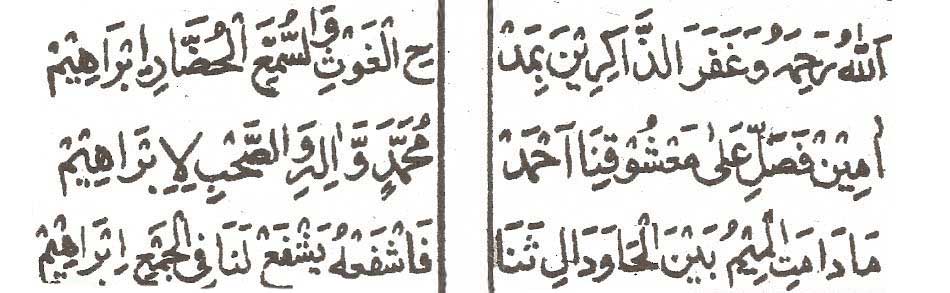 اَللّٰهُ رَحِمَهُ وَغَفَرَ الذَّاكِرِيْنَ بِمَدْ حِ الْغَوْثِ وَالسُّمَّعَ الْحُضَّارِ اِبْرَاهِيْمْ
اٰمِيْنَ فَصَلِّ عَلٰى مَعْشُوْقِنَا اَحْمَدْ مُحَمَّدٍ وَّاٰلِهِ وَالصَّحْبِ لِاِبْرَاهِيْمْ
مَادَامَتِ الْمِيْمُ بَيْنَ الْحَا وَدَالِ ثَنَا فَاشْفَعْهُ يَشْفَعْ لَنَا فِى الْجَمْعِ اِبْرَاهِيْمْ